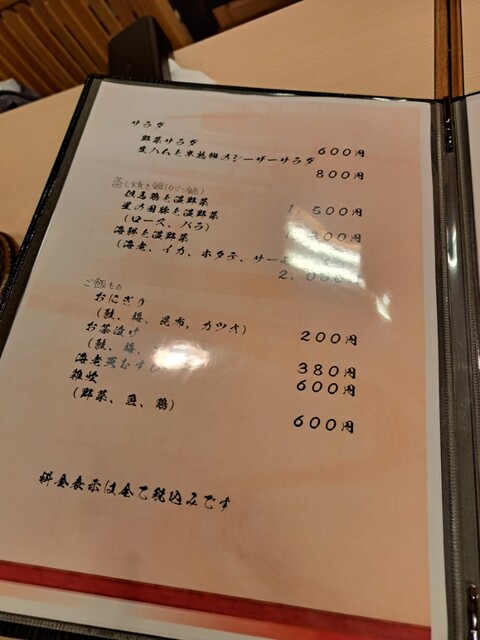 サラダ
野菜サラダ 600円
生ハムと半熟卵のシーザーサラダ 800円
蒸し焼き鍋(タジン鍋)
但馬鶏と温野菜 1,500円
星の国豚と温野菜 00円
(ロース、バラ)
海鮮と温野菜
(海老、イカ、ホタテ、サー
2,000
ご飯もの
おにぎり 200円
(鮭、梅、昆布、カツオ)
お茶漬け 380円
(鮭、梅、
海老天むす 600円
雑炊 600円
(野菜、魚、鶏)
料金表示は全て税込みです